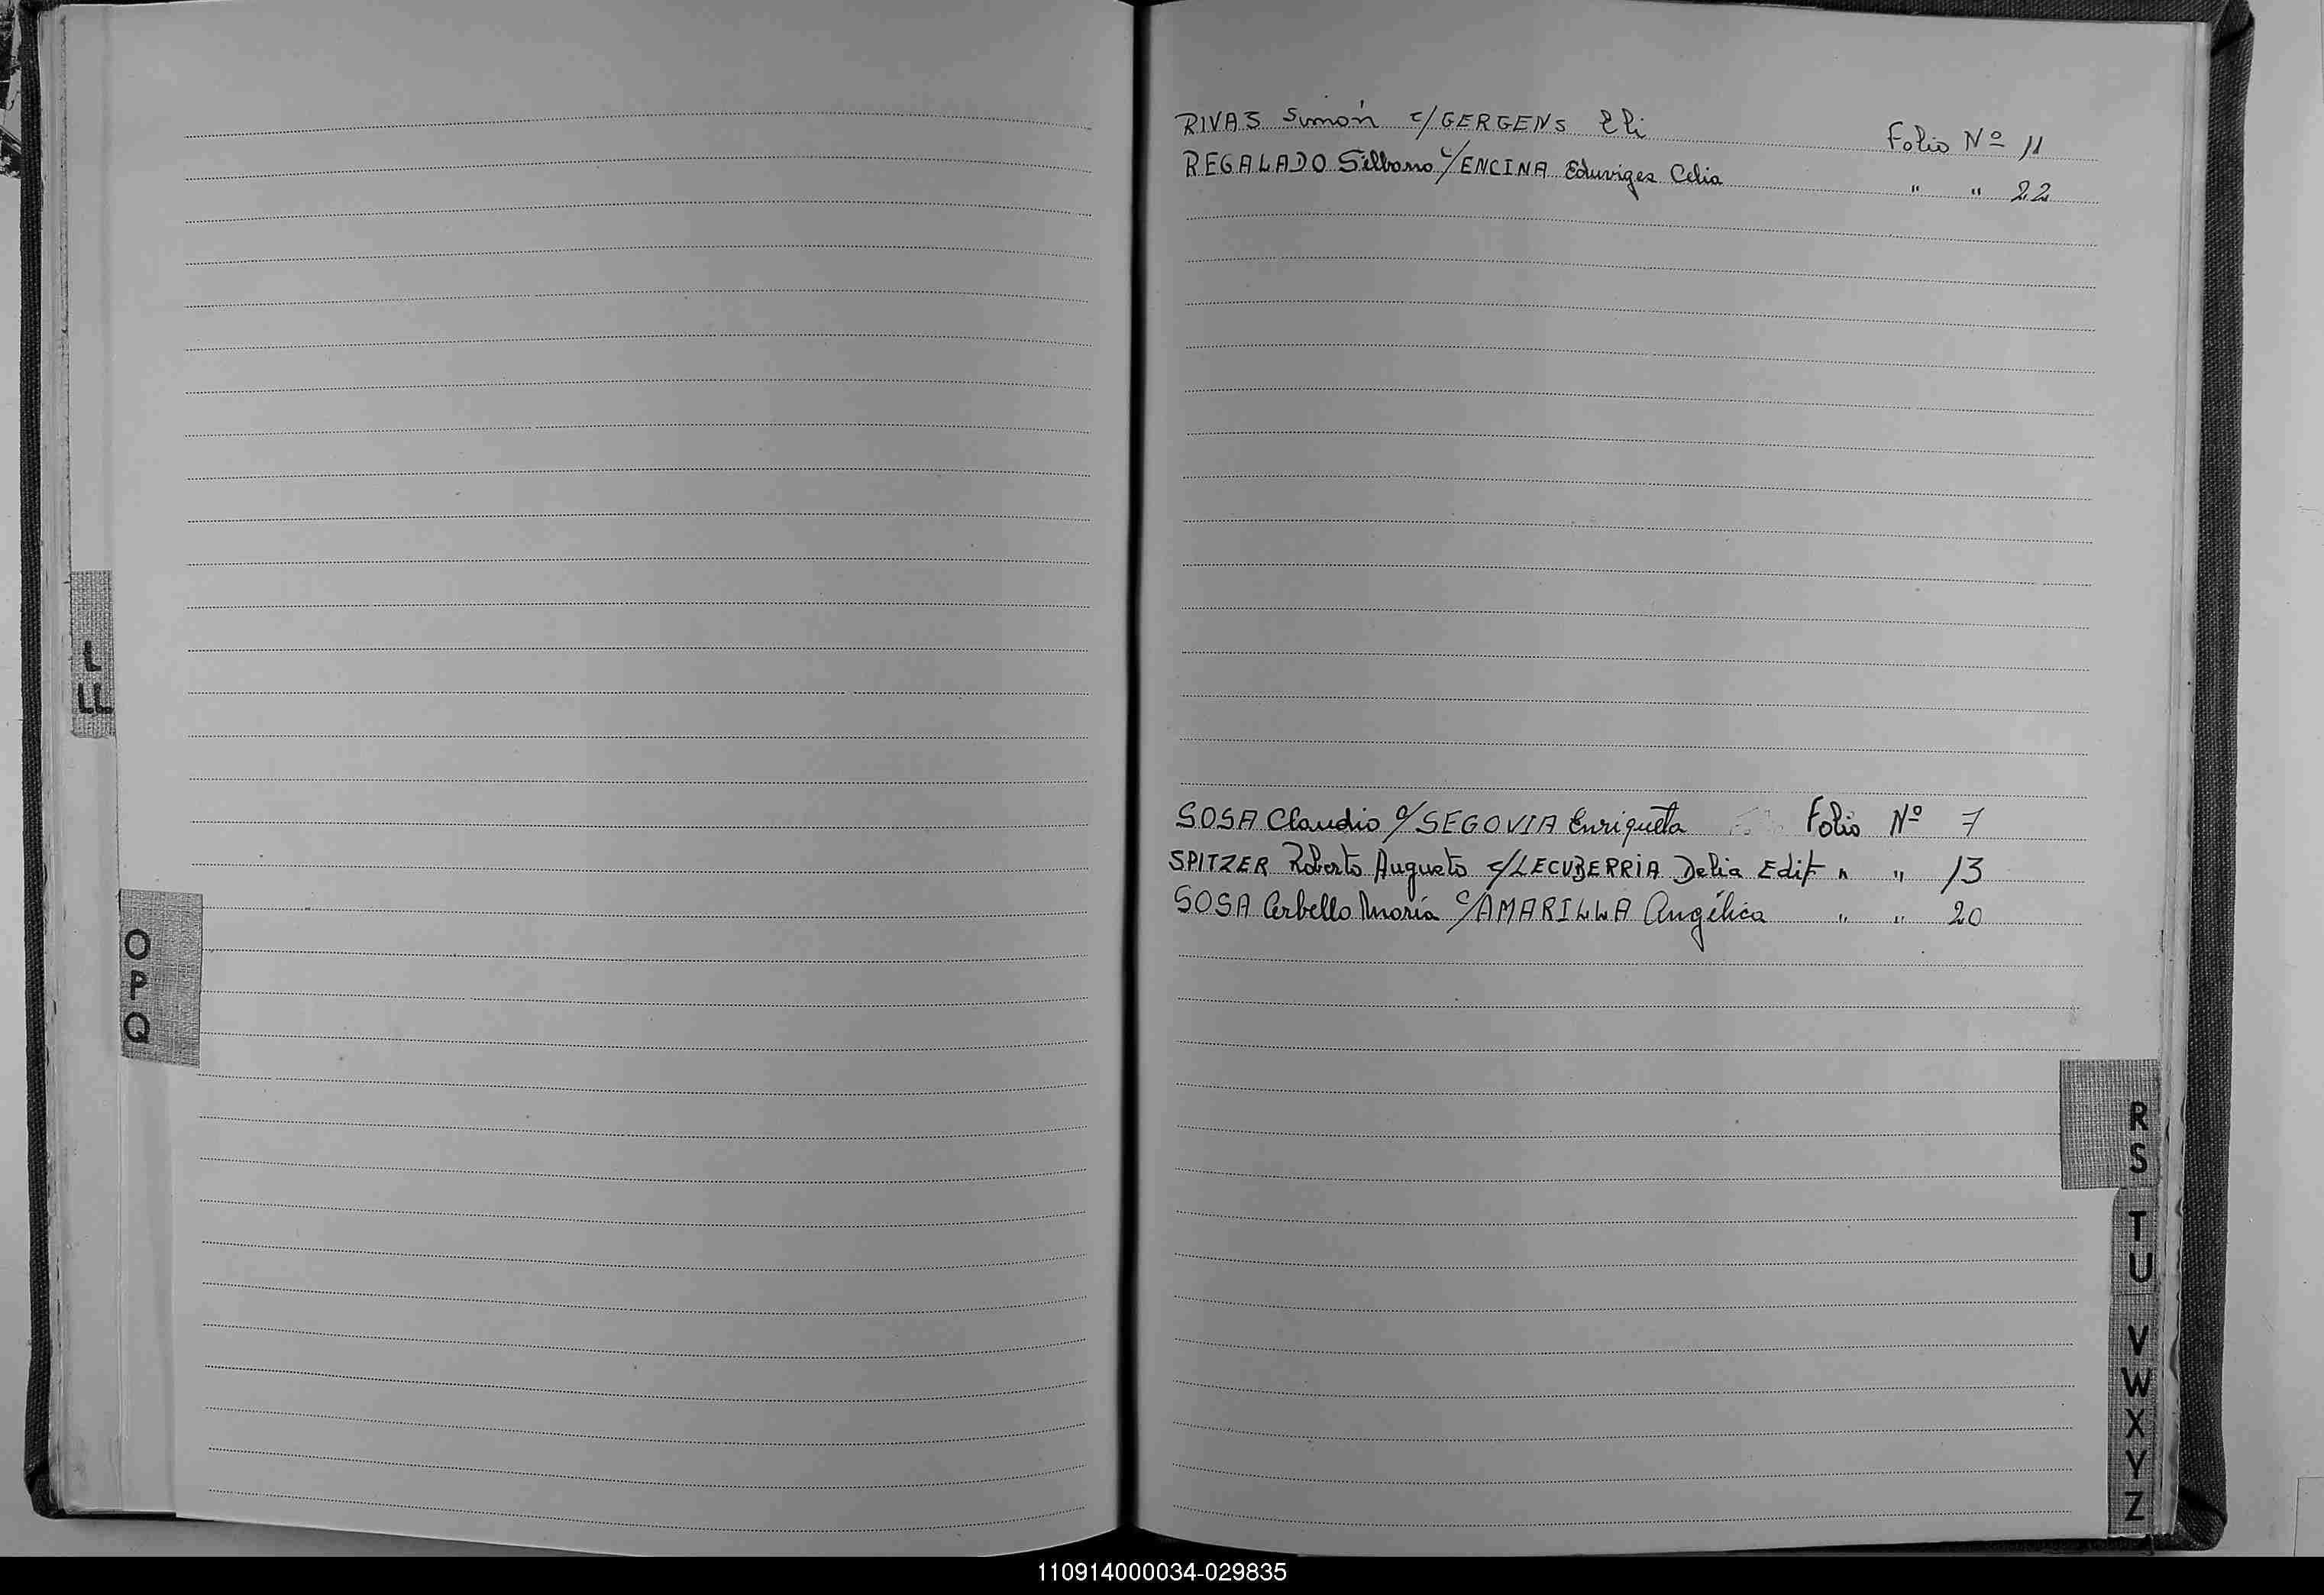 RIVAS Simón c/GERGENS Eli Folio Nº 11
REGALADO Silbano c/ENCINA Eduviges Celia " " 22
SOSA Claudio c/SEGOVIA Enriqueta Folio Nº 7
SPITZER Roberto Augusto c/LECUBERRIA Delia Edit " " 13
SOSA Cerbello María c/AMARILLA Angélica " " 20
L
LL
O
P
Q
R
S
T
U
V
W
X
Y
Z
110914000034-029835